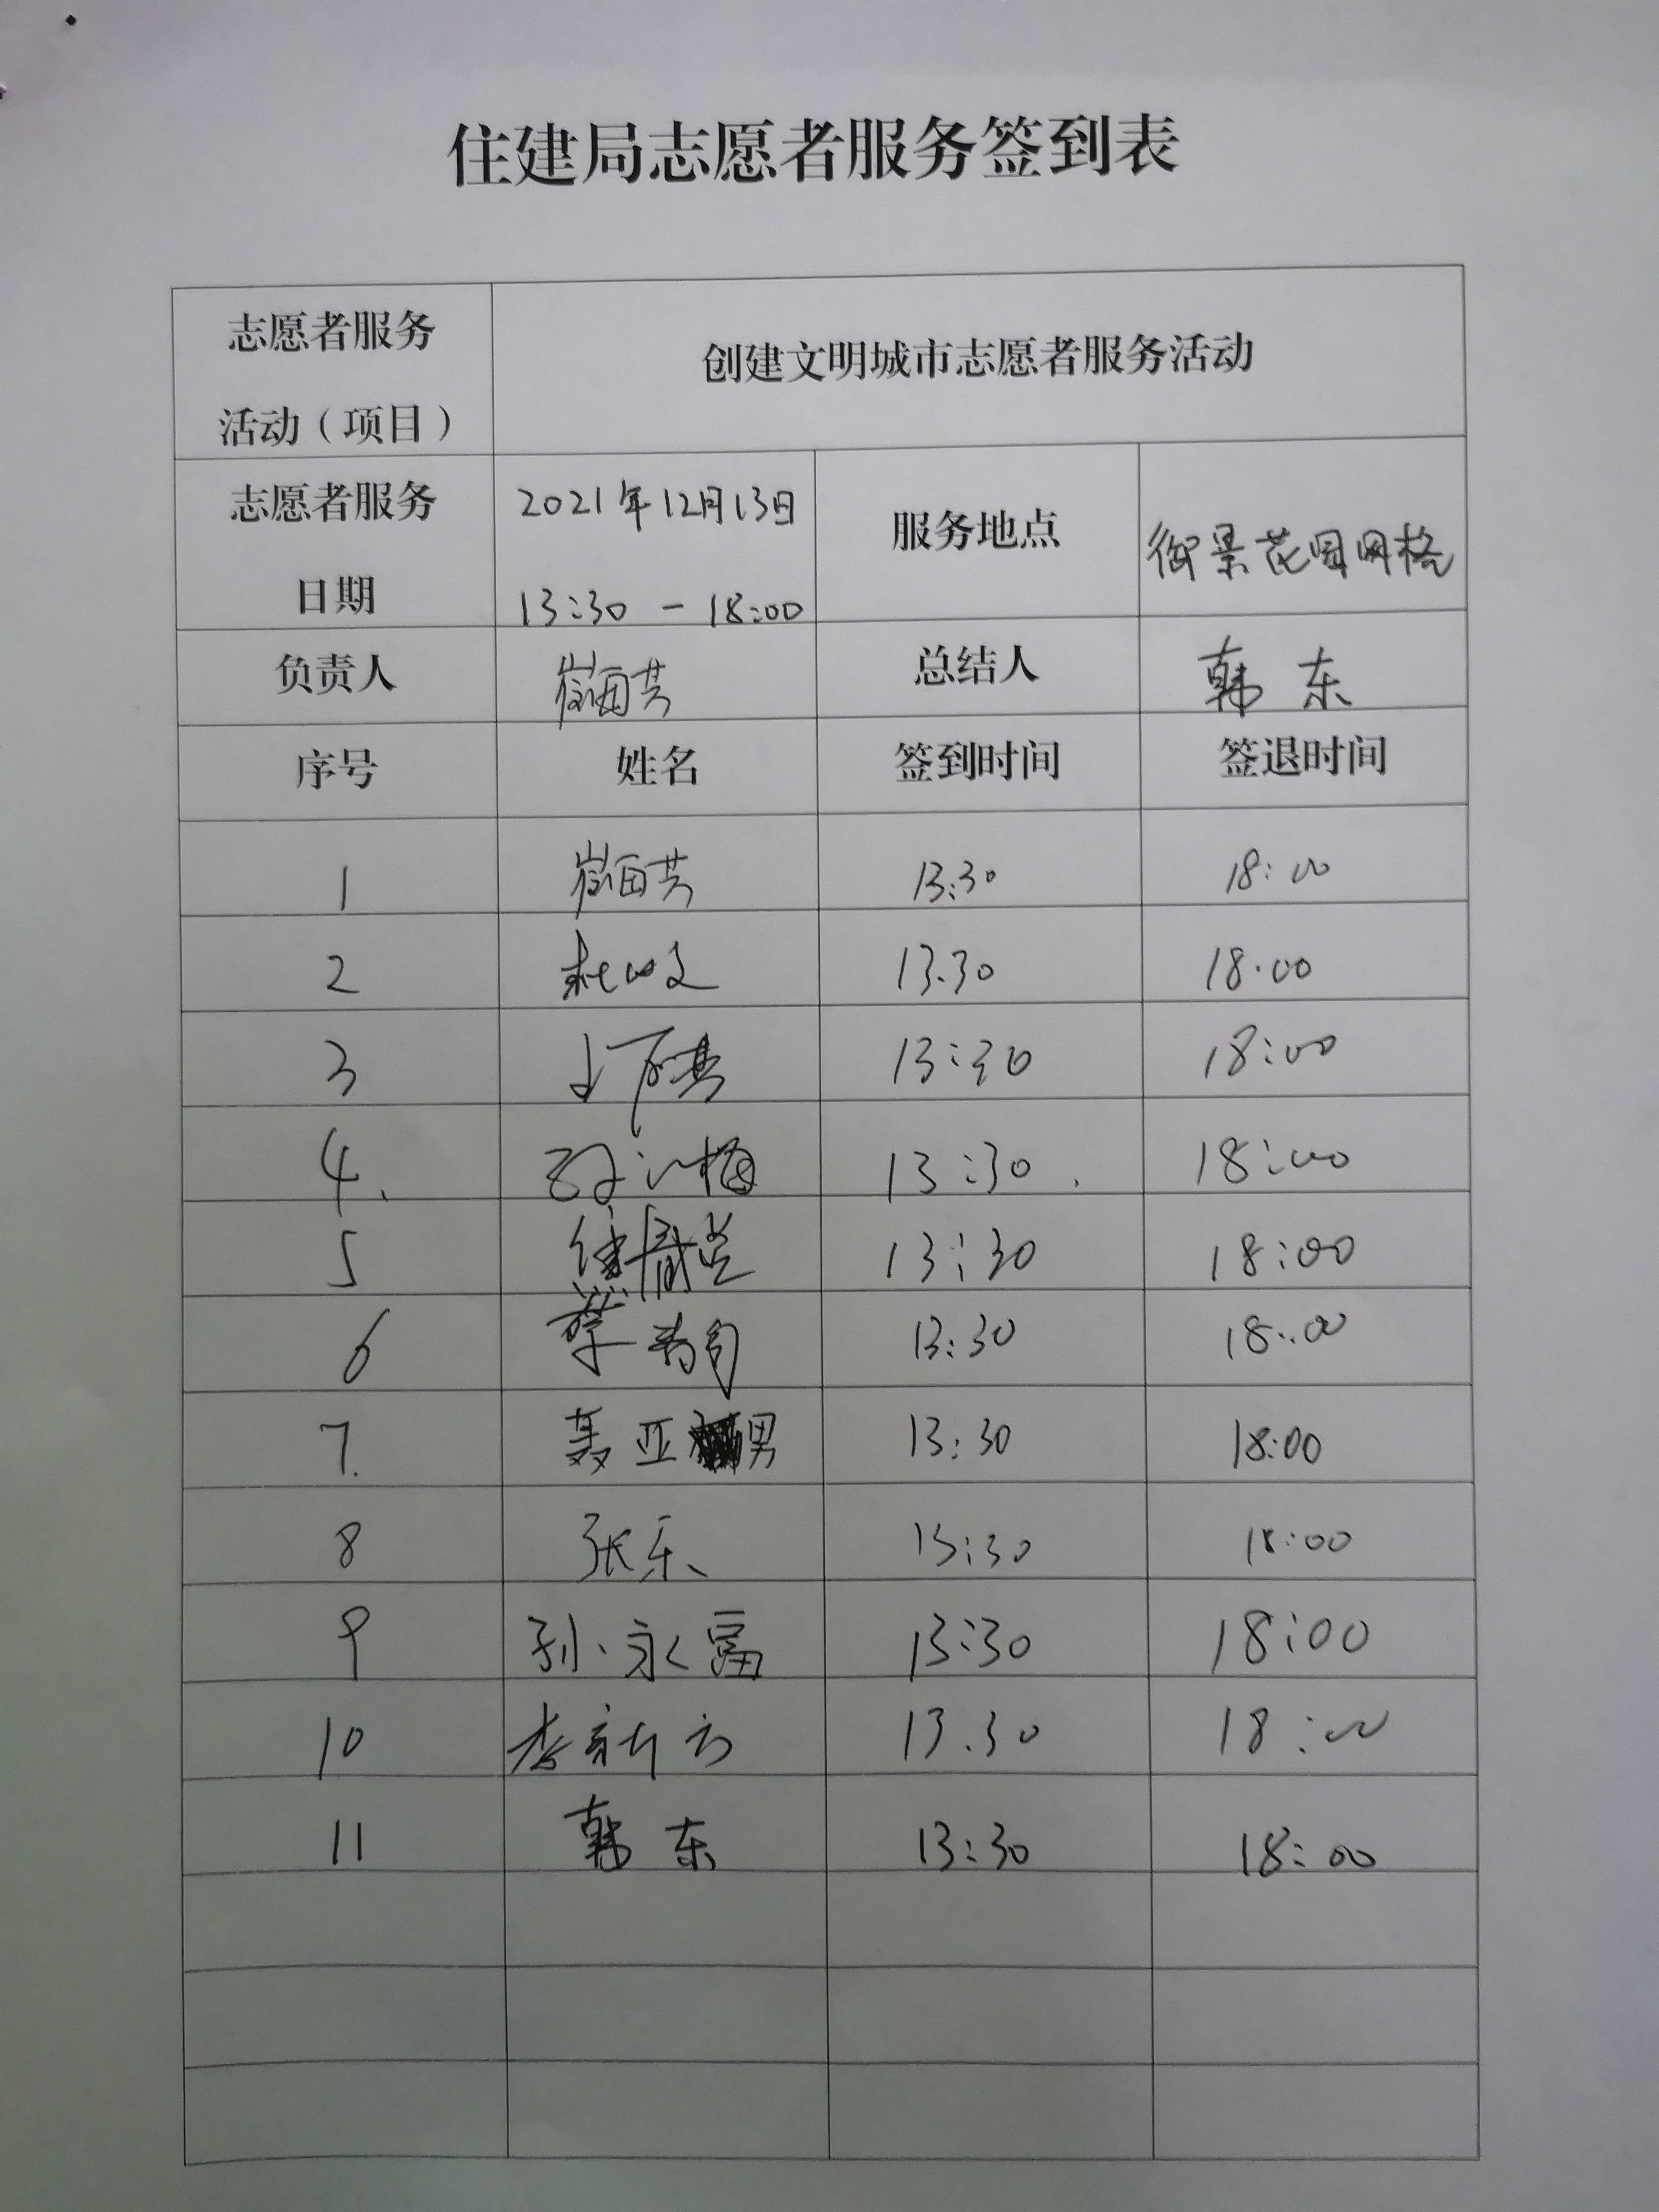 住建局志愿者服务签到表
志愿者服务
活动（项目）
创建文明城市志愿者服务活动
志愿者服务
日期
2021年12月13日
13:30 - 18:00
服务地点
御景花园网格
负责人
总结人
韩东
序号 姓名 签到时间 签退时间
1 13:30 18:00
2 13.30 18.00
3 13:30 18:00
4. 13:30. 18:00
5 13:30 18:00
6 13:30 18:00
7. 聂亚男 13:30 18:00
8 张乐 13:30 18:00
9 孙永富 13:30 18:00
10 13.30 18:00
11 韩东 13:30 18:00